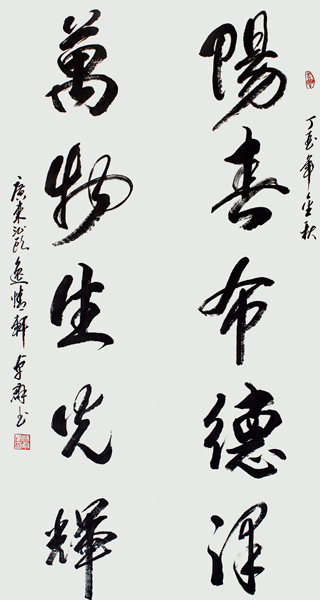 丁酉年金秋
陽春布德澤
萬物生光輝
廣東汕頭逸情軒卓群書